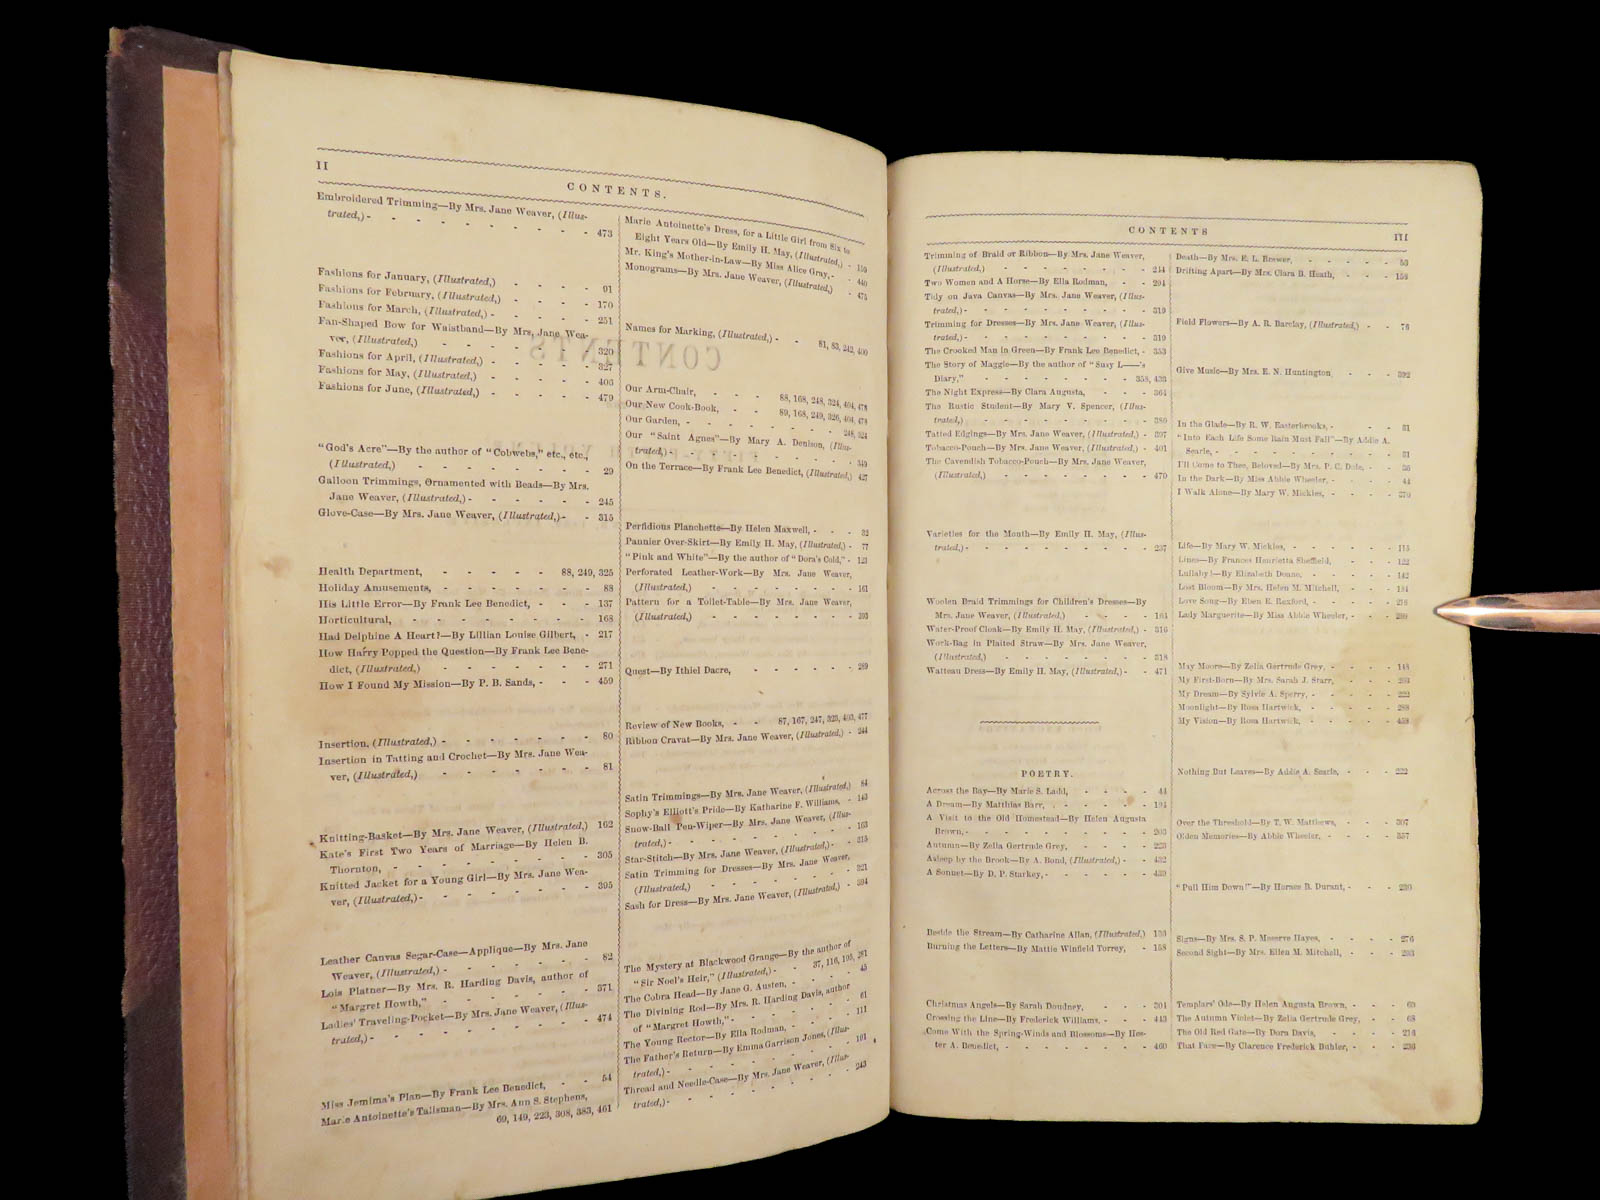 II
CONTENTS.
Embroidered Trimming—By Mrs. Jane Weaver, (Illus-
trated,) - - - - - - - - - 473
Fashions for January, (Illustrated,) - - - - 91
Fashions for February, (Illustrated,) - - - - 170
Fashions for March, (Illustrated,) - - - - - 251
Fan-Shaped Bow for Waistband—By Mrs, Jane Wea-
ver, (Illustrated,) - - - - - - - 320
Fashions for April, (Illustrated,) - - - - - 327
Fashions for May, (Illustrated,) - - - - - 406
Fashions for June, (Illustrated,) - - - - - 479
"God's Acre"—By the author of "Cobwebs," etc., etc.,
(Illustrated,) - - - - - - - - 29
Galloon Trimmings, Ornamented with Beads—By Mrs.
Jane Weaver, (Illustrated,) - - - - - - 245
Glove-Case—By Mrs. Jane Weaver, (Illustrated,) - - 315
Health Department, - - - - - 88, 249, 325
Holiday Amusements, - - - - - - - 88
His Little Error—By Frank Lee Benedict, - - - 137
Horticultural, - - - - - - - - 168
Had Delphine A Heart?—By Lillian Louise Gilbert, - 217
How Harry Popped the Question—By Frank Lee Bene-
dict, (Illustrated,) - - - - - - - 271
How I Found My Mission—By P. B. Sands, - - - 459
Insertion, (Illustrated,) - - - - - - - 80
Insertion in Tatting and Crochet—By Mrs. Jane Wea-
ver, (Illustrated,) - - - - - - - 81
Knitting-Basket—By Mrs. Jane Weaver, (Illustrated,) 162
Kate's First Two Years of Marriage—By Helen B.
Thornton, - - - - - - - - - 305
Knitted Jacket for a Young Girl—By Mrs. Jane Wea-
ver, (Illustrated,) - - - - - - - 395
Leather Canvas Segar-Case—Applique—By Mrs. Jane
Weaver, (Illustrated,) - - - - - - - 82
Lois Platner—By Mrs. R. Harding Davis, author of
"Margret Howth," - - - - - - - 371
Ladies' Traveling-Pocket—By Mrs. Jane Weaver, (Illus-
trated,) - - - - - - - - - 474
Miss Jemima's Plan—By Frank Lee Benedict, - - 54
Marie Antoinette's Talisman—By Mrs. Ann S. Stephens,
69, 149, 223, 308, 383, 461
Marie Antoinette's Dress, for a Little Girl from Six to
Eight Years Old—By Emily H. May, (Illustrated,) - 159
Mr. King's Mother-in-Law—By Miss Alice Gray, - - 440
Monograms—By Mrs. Jane Weaver, (Illustrated,) - 475
Names for Marking, (Illustrated,) - - 81, 83, 242, 400
Our Arm-Chair, - - - 88, 168, 248, 324, 404, 478
Our New Cook-Book, - - 89, 168, 249, 326, 404, 478
Our Garden, - - - - - - - - 248, 324
Our "Saint Agnes"—By Mary A. Denison, (Illus-
trated,) - - - - - - - - - 349
On the Terrace—By Frank Lee Benedict, (Illustrated,) 427
Perfidious Planchette—By Helen Maxwell, - - - 32
Pannier Over-Skirt—By Emily H. May, (Illustrated,) - 77
"Pink and White"—By the author of "Dora's Cold," - 123
Perforated Leather-Work—By Mrs. Jane Weaver,
(Illustrated,) - - - - - - - - 161
Pattern for a Toilet-Table—By Mrs. Jane Weaver,
(Illustrated,) - - - - - - - - 393
Quest—By Ithiel Dacre, - - - - - - 289
Review of New Books, - - 87, 167, 247, 323, 403, 477
Ribbon Cravat—By Mrs. Jane Weaver, (Illustrated,) - 244
Satin Trimmings—By Mrs. Jane Weaver, (Illustrated,) 84
Sophy's Elliott's Pride—By Katharine F. Williams, - 143
Snow-Ball Pen-Wiper—By Mrs. Jane Weaver, (Illus-
trated,) - - - - - - - - - 163
Star-Stitch—By Mrs. Jane Weaver, (Illustrated,) - - 315
Satin Trimming for Dresses—By Mrs. Jane Weaver,
(Illustrated,) - - - - - - - - 321
Sash for Dress—By Mrs. Jane Weaver, (Illustrated,) - 394
The Mystery at Blackwood Grange—By the author of
"Sir Noel's Heir," (Illustrated,) - - 37, 116, 195, 281
The Cobra Head—By Jane G. Austen, - - - - 45
The Divining Rod—By Mrs. R. Harding Davis, author
of "Margret Howth," - - - - - - - 61
The Young Rector—By Ella Rodman, - - - - 111
The Father's Return—By Emma Garrison Jones, (Illus-
trated,) - - - - - - - - - 191
Thread and Needle-Case—By Mrs. Jane Weaver, (Illus-
trated,) - - - - - - - - - 243
CONTENTS
III
Trimming of Braid or Ribbon—By Mrs. Jane Weaver,
(Illustrated,) - - - - - - - - 244
Two Women and A Horse—By Ella Rodman, - - 294
Tidy on Java Canvas—By Mrs. Jane Weaver, (Illus-
trated,) - - - - - - - - - 319
Trimming for Dresses—By Mrs. Jane Weaver, (Illus-
trated,) - - - - - - - - - 319
The Crooked Man in Green—By Frank Lee Benedict, - 353
The Story of Maggie—By the author of "Susy L——'s
Diary," - - - - - - - - 358, 433
The Night Express—By Clara Augusta, - - - 364
The Rustic Student—By Mary V. Spencer, (Illus-
trated,) - - - - - - - - - 380
Tatted Edgings—By Mrs. Jane Weaver, (Illustrated,) - 397
Tobacco-Pouch—By Mrs. Jane Weaver, (Illustrated,) - 401
The Cavendish Tobacco-Pouch—By Mrs. Jane Weaver,
(Illustrated,) - - - - - - - - 470
Varieties for the Month—By Emily H. May, (Illus-
trated,) - - - - - - - - - 237
Woolen Braid Trimmings for Children's Dresses—By
Mrs. Jane Weaver, (Illustrated,) - - - - 164
Water-Proof Cloak—By Emily H. May, (Illustrated,) - 316
Work-Bag in Plaited Straw—By Mrs. Jane Weaver,
(Illustrated,) - - - - - - - - 318
Watteau Dress—By Emily H. May, (Illustrated,) - - 471
POETRY.
Across the Bay—By Marie S. Ladd, - - - - 44
A Dream—By Matthias Barr, - - - - - - 194
A Visit to the Old Homestead—By Helen Augusta
Brown, - - - - - - - - - 203
Autumn—By Zelia Gertrude Grey, - - - - 223
Asleep by the Brook—By A. Bond, (Illustrated,) - - 432
A Sonnet—By D. P. Starkey, - - - - - - 439
Beside the Stream—By Catharine Allan, (Illustrated,) 136
Burning the Letters—By Mattie Winfield Torrey, - 158
Christmas Angels—By Sarah Doudney, - - - 304
Crossing the Line—By Frederick Williams, - - - 443
Come With the Spring-Winds and Blossoms—By Hes-
ter A. Benedict, - - - - - - - - 460
Death—By Mrs. E. L. Brewer, - - - - - 53
Drifting Apart—By Mrs. Clara B. Heath, - - - 158
Field Flowers—By A. R. Barclay, (Illustrated,) - - 76
Give Music—By Mrs. E. N. Huntington, - - - 392
In the Glade—By R. W. Easterbrooks, - - - - 31
"Into Each Life Some Rain Must Fall"—By Addie A.
Searle, - - - - - - - - - 31
I'll Come to Thee, Beloved—By Mrs. P. C. Dole, - - 36
In the Dark—By Miss Abbie Wheeler, - - - - 44
I Walk Alone—By Mary W. Mickles, - - - - 370
Life—By Mary W. Mickles, - - - - - - 115
Lines—By Frances Henrietta Sheffield, - - - 122
Lullaby!—By Elizabeth Doane, - - - - - 142
Lost Bloom—By Mrs. Helen M. Mitchell, - - - 194
Love Song—By Eben E. Rexford, - - - - - 216
Lady Marguerite—By Miss Abbie Wheeler, - - -
May Moore—By Zelia Gertrude Grey, - - - - 148
My First-Born—By Mrs. Sarah J. Starr, - - - 203
My Dream—By Sylvie A. Sperry, - - - - - 222
Moonlight—By Rosa Hartwick, - - - - - 288
My Vision—By Rosa Hartwick, - - - - - 458
Nothing But Leaves—By Addie A. Searle, - - - 222
Over the Threshold—By T. W. Matthews, - - - 307
Olden Memories—By Abbie Wheeler, - - - - 357
"Pull Him Down!"—By Horace B. Durant, - - - 230
Signs—By Mrs. S. P. Meserve Hayes, - - - - 276
Second Sight—By Mrs. Ellen M. Mitchell, - - - 293
Templars' Ode—By Helen Augusta Brown, - - - 60
The Autumn Violet—By Zelia Gertrude Grey, - - 68
The Old Red Gate—By Dora Davis, - - - - 216
That Face—By Clarence Frederick Buhler, - - - 236